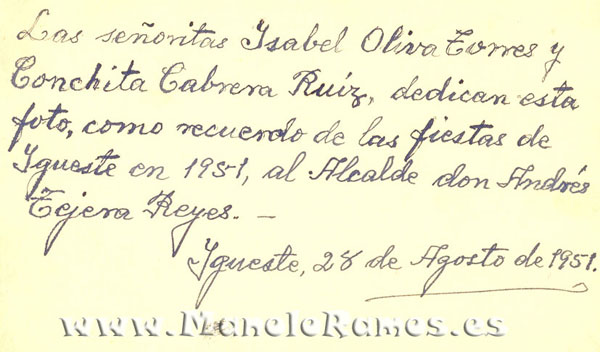 Las señoritas Ysabel Oliva Torres y
Conchita Cabrera Ruíz, dedican esta
foto, como recuerdo de las fiestas de
Ygueste en 1951, al Alcalde don Andrés
Tejera Reyes. —
Ygueste, 28 de Agosto de 1951.
www.ManeleRamos.es